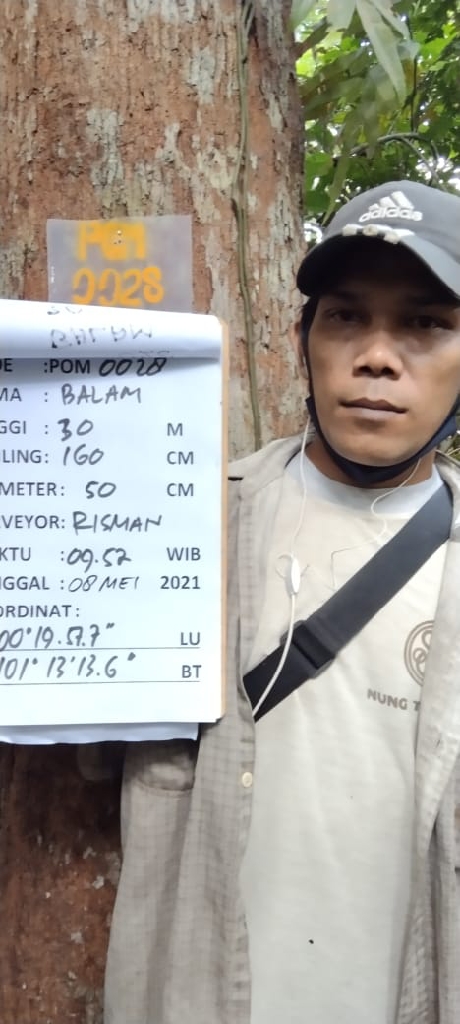 POM
0028
BALAM
DE :POM 0028
MA : BALAM
GGI : 30 M
LING: 160 CM
METER: 50 CM
VEYOR: RISMAN
KTU : 09.52 WIB
NGGAL : 08 MEI 2021
ORDINAT:
00°19'.57.7" LU
101° 13'13.6" BT
adidas
NUNG T